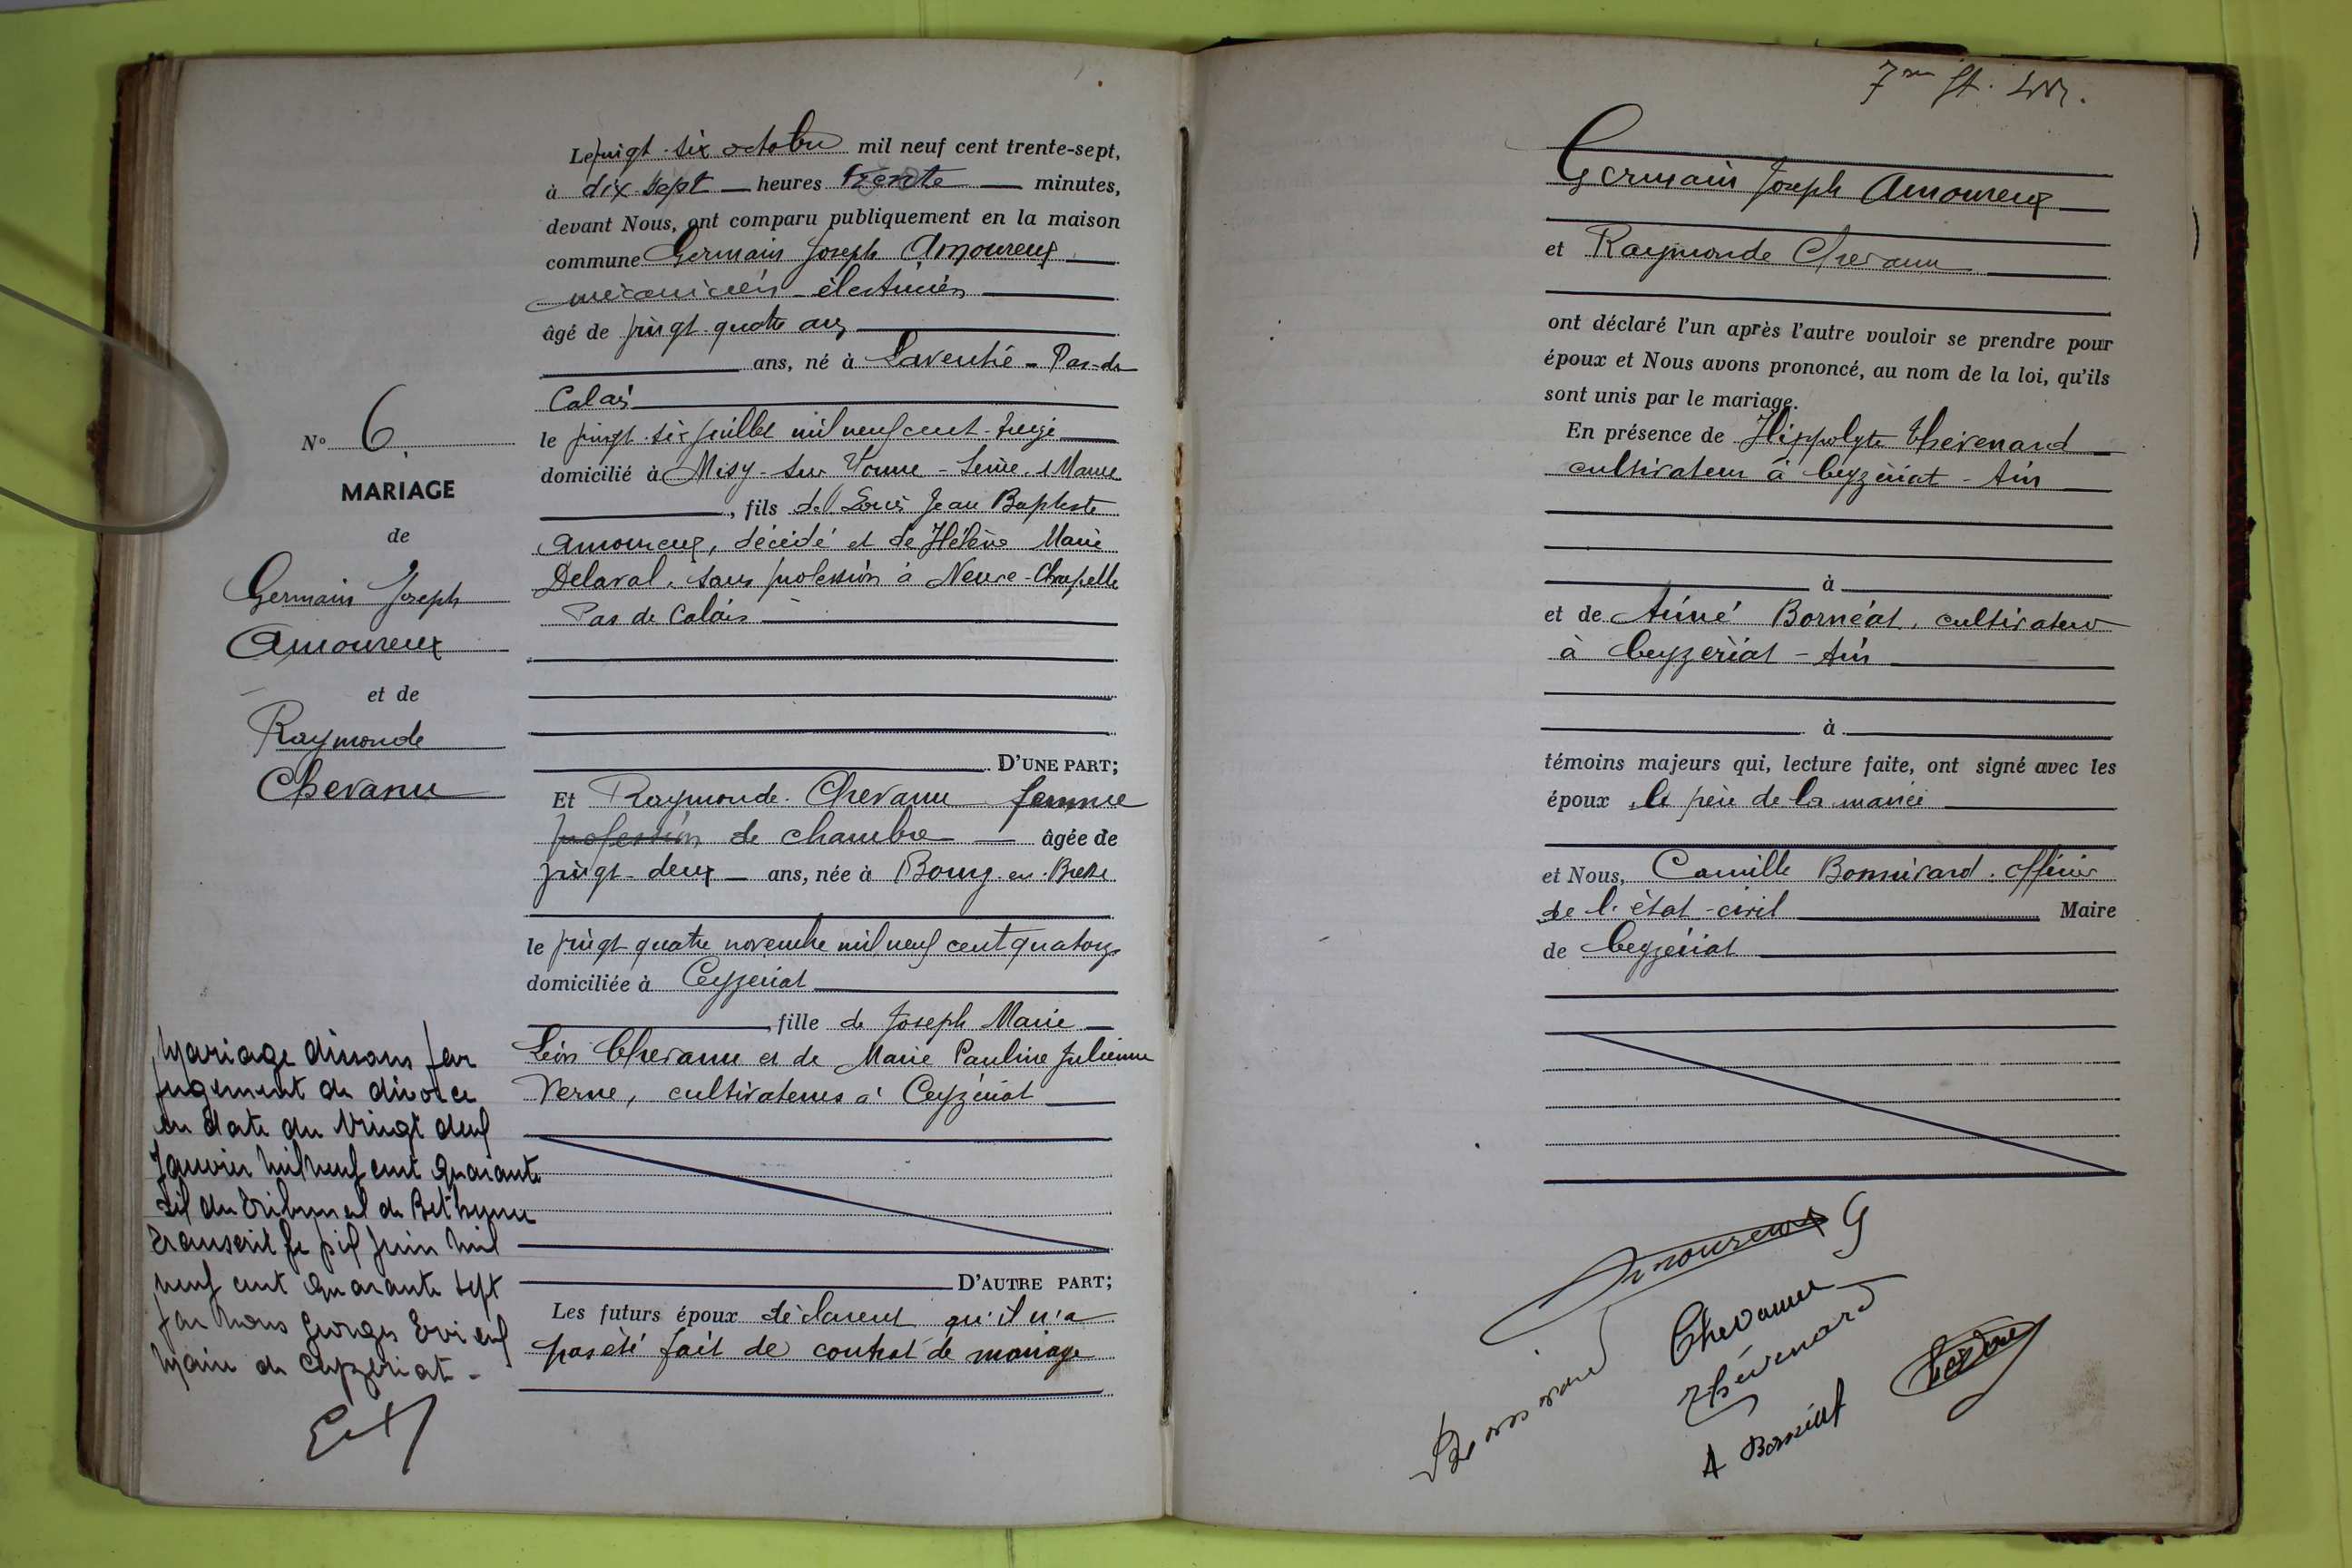 N° 6.
MARIAGE
de
Germain Joseph
Amoureux
et de
Raymonde
Chevanu
Mariage dissous par
jugement de divorce
en date du Vingt deux
Janvier mil neuf cent quarante
six du Tribunal de Bethune
Transcrit le dix Juin mil
neuf cent quarante sept
par nous Georges
Maire de Ceyzeriat -
Le vingt-six octobre mil neuf cent trente-sept,
à dix-sept heures trente minutes,
devant Nous, ont comparu publiquement en la maison
commune Germain Joseph Amoureux
mécanicien-électricien
âgé de vingt-quatre ans
ans, né à Laventie - Pas-de
Calais
le vingt-six juillet mil neuf cent-treize
domicilié à Misy-sur Yonne - Seine & Marne
, fils de Louis Jean Baptiste
Amoureux, décédé et de Hélène Marie
Delaval, sans profession à Neuve-Chapelle
Pas de Calais
D'UNE PART;
Et Raymonde Chevanu femme
profession de chambre âgée de
vingt-deux ans, née à Bourg-en-Bresse
le vingt-quatre novembre mil neuf cent quatorze
domiciliée à Ceyzériat
, fille de Joseph Marie
Léon Chevanu et de Marie Pauline Julienne
Verne, cultivateurs à Ceyzériat
D'AUTRE PART;
Les futurs époux déclarent qu'il n'a
pas été fait de contrat de mariage
7me
Germain Joseph Amoureux
et Raymonde Chevanu
ont déclaré l'un après l'autre vouloir se prendre pour
époux et Nous avons prononcé, au nom de la loi, qu'ils
sont unis par le mariage.
En présence de Hippolyte Thévenard
cultivateur à Ceyzériat - Ain
à
et de Aimé Bornéat, cultivateur
à Ceyzériat - Ain
à
témoins majeurs qui, lecture faite, ont signé avec les
époux, le père de la mariée
et Nous, Camille Bonnivard, officier
de l'état-civil Maire
de Ceyzériat
Amoureux G
Chevanu
Thévenard
Bonnivard
A Bornéat